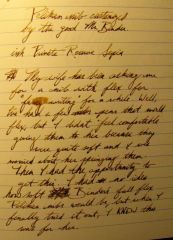 Pelikan nib customized
by the good Mr. Binder
ink Private Reserve Sepia
My wife has been asking me
for a nib with flex for
writing for a while. Well,
I've had a few pens that would
flex, but I didn't feel comfortable
giving them to her because they
were quite soft and I was
worried about her springing them.
Then I had the opportunity to
get this. I had no idea
how soft Binder's full flex
Pelikan nibs would be, but when I
finally tried it out, I KNEW this
was for her.